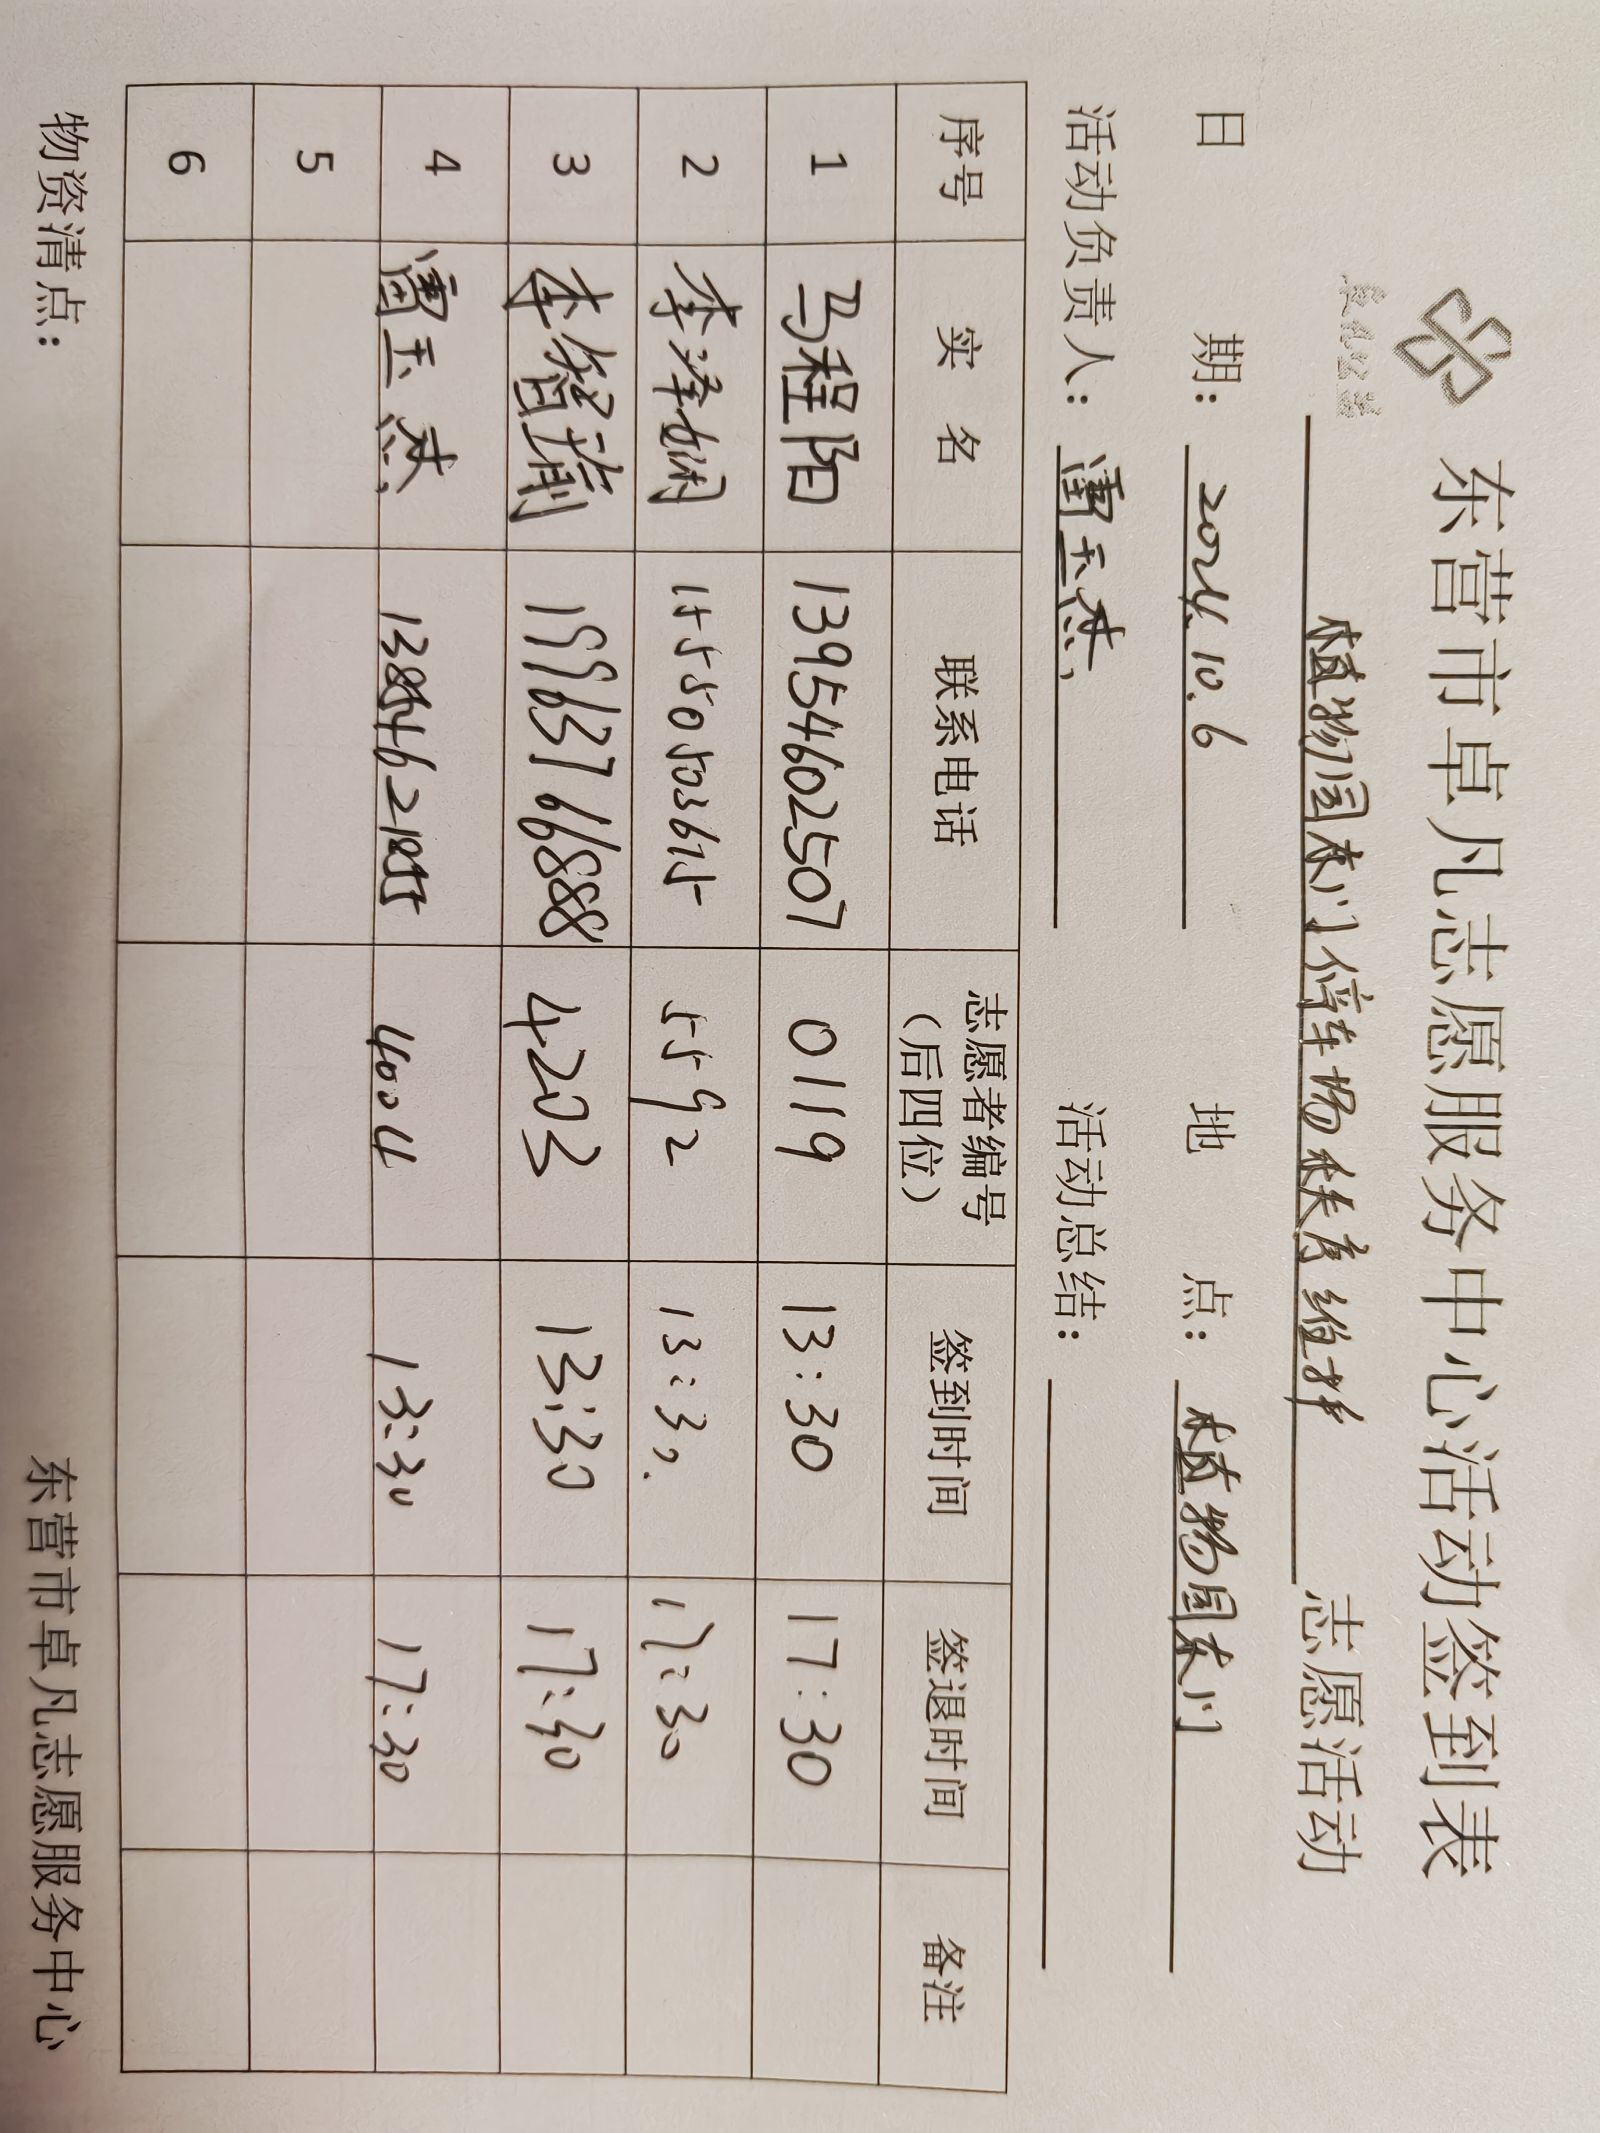 东营市卓凡志愿服务中心活动签到表
植物园东门停车场秩序维护 志愿活动
日 期： 2024.10.6 地 点： 植物园东门
活动负责人： 玉杰 活动总结：
序号 实 名 联系电话 志愿者编号（后四位） 签到时间 签退时间 备注
1 马程阳 13954602507 0119 13:30 17:30
2 李泽娴 15550503675 5592 13:30 17:30
3 李智 19963766888 4203 13:30 17:30
4 玉杰 4004 13:30 17:30
5
6
物资清点：
东营市卓凡志愿服务中心